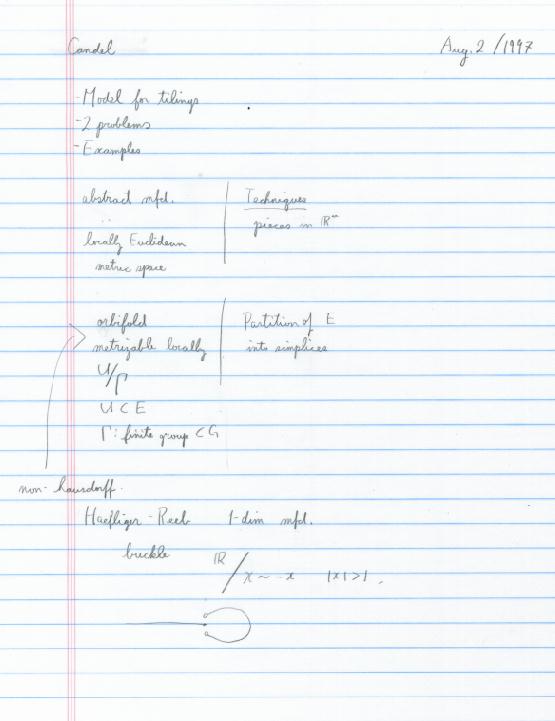 Candel Aug. 2 / 1997
- Model for tilings
- 2 problems
- Examples
abstract mfd.
locally Euclidean
metric space
Techniques
pieces in ℝⁿ
orbifold
metrizable locally
U/Γ
U ⊂ E
Γ: finite group ⊂ G
Partition of E
into simplices
non-hausdorff.
Haefliger - Reeb 1-dim mfd.
buckle ℝ / x ~ -x |x| > 1.